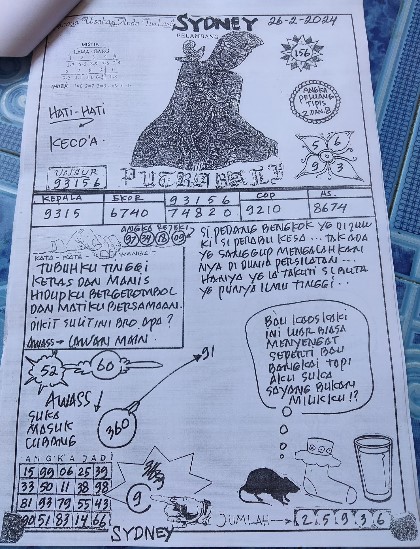 SYDNEY
26-2-2024
PELAMBANG
MISTIK
156
HATI-HATI
KECOA
ANGKA
PELUANG
TIPIS
2 DAN 8
5 6
9 3
UNSUR
93156
PUTRA BALI
KEPALA EKOR 93156 COP AS.
9315 6740 74820 9210 8674
ANGKA REJEKI
97 39 18 09
KATA - KATA
TUBUHKU TINGGI
KERAS DAN MANIS
HIDUPKU BERGEROMBOL
DAN MATIKU BERSAMAAN.
DIKIT SULIT INI BRO APA?
AWASS → LAWAN MAIN.
SI PEDANG BENGKOK YG DI JULU
KI SI PERABU KESA... TAK ADA
YG SANGGUP MENGALAHKAN
NYA DI DUNIA PERSILATAN...
HANYA YG IA TAKUTI SI BUTA
YG PUNYA ILMU TINGGI...
52 60
91
AWASS!
SUKA
MASUK
CUBANG
360
BAU KAOS KAKI
INI LUAR BIASA
MENYENGAT
SEPERTI BAU
BANGKAI TAPI
AKU SUKA
SAYANG BUKAN
MILIKKU !?
ANGKA JADI
15 99 06 25 39
33 50 11 38 98
81 93 79 55 43
90 51 83 14 66
9
JUMLAH → 2 5 9 3 6
SYDNEY